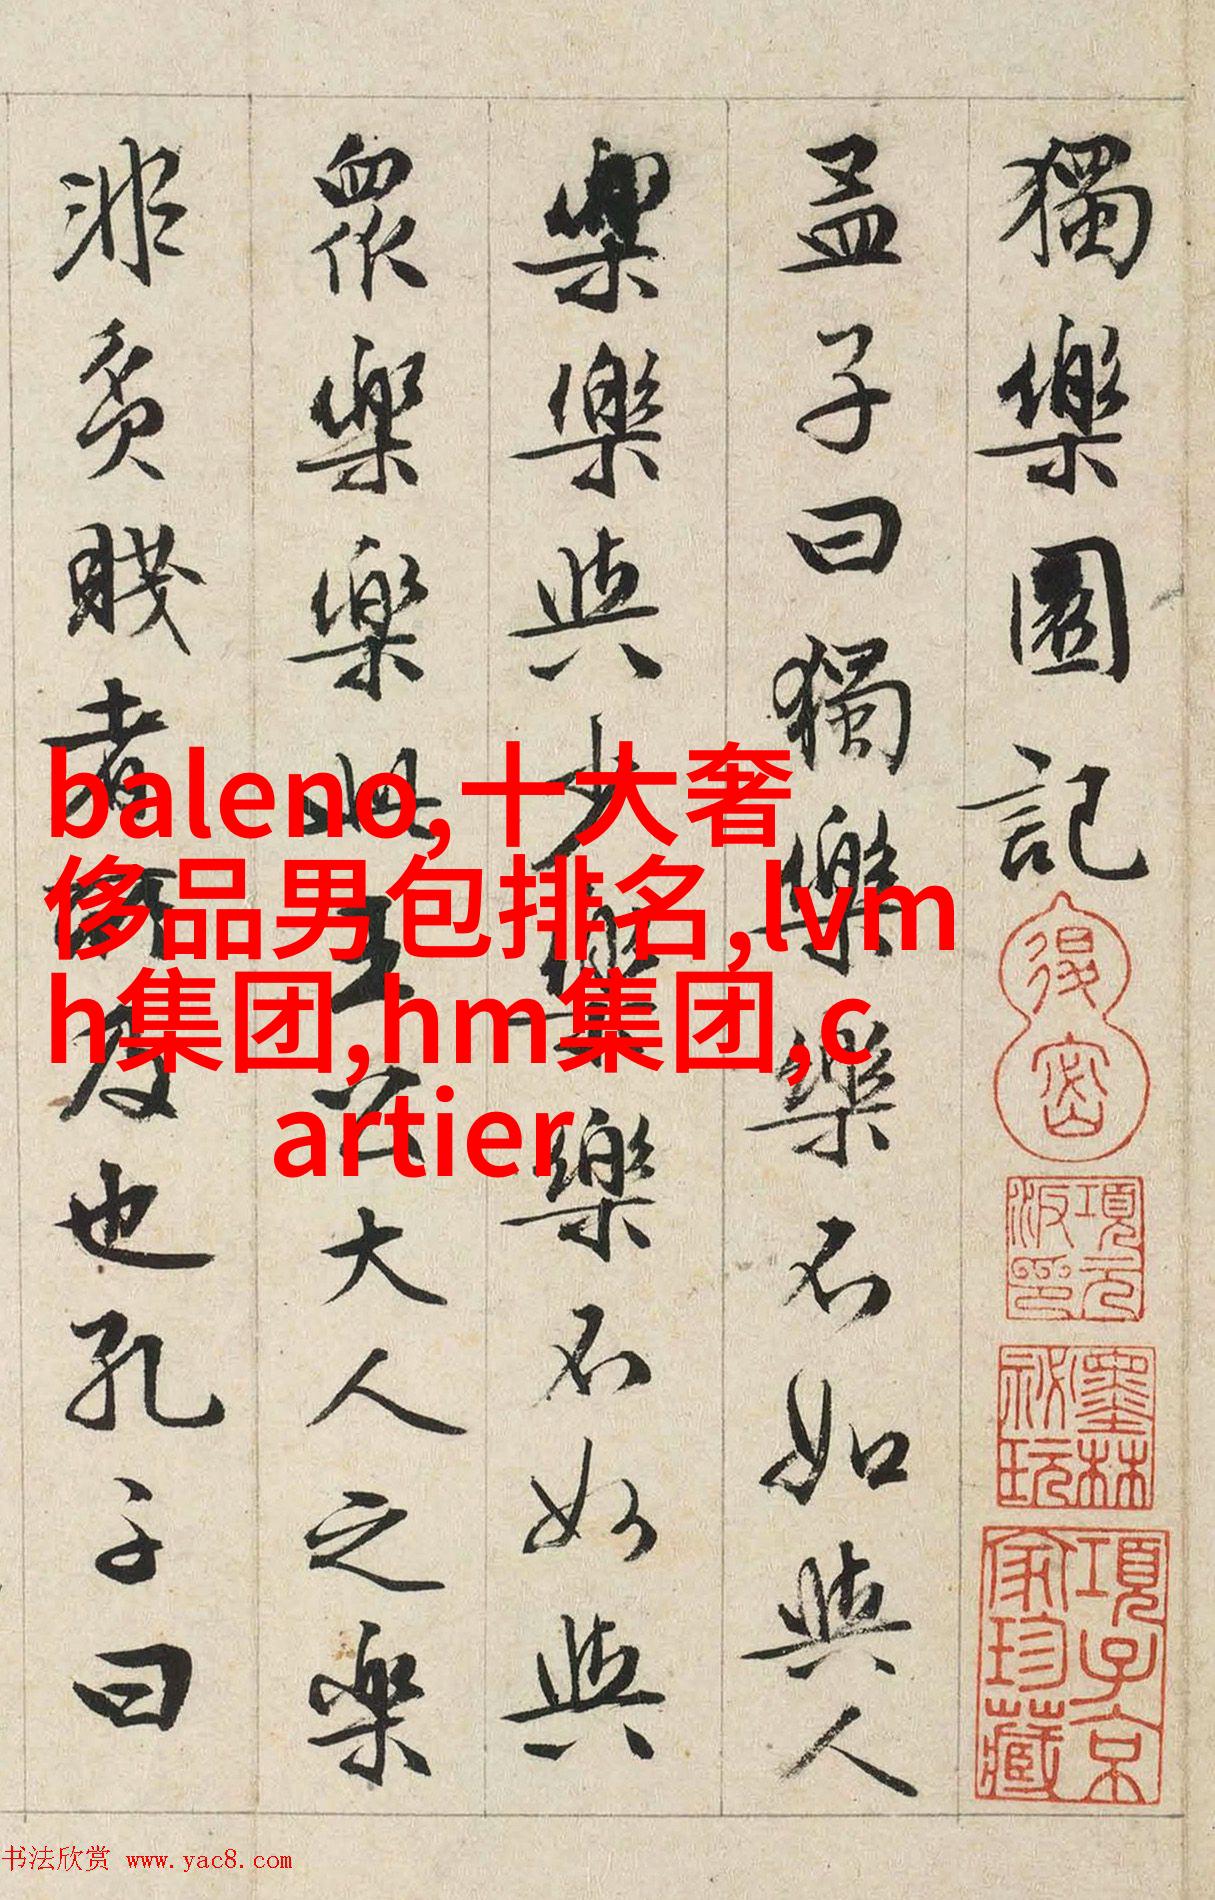 獨樂園記
孟子曰獨樂樂不如與人
樂樂與少樂樂不如與
眾樂樂此王公大人之樂
非貧賤者所及也孔子曰
項元汴印
墨林秘玩
項子京家珍藏
baleno,十大奢
侈品男包排名,lvm
h集团,hm集团,c
artier
书法欣赏 www.yac8.com